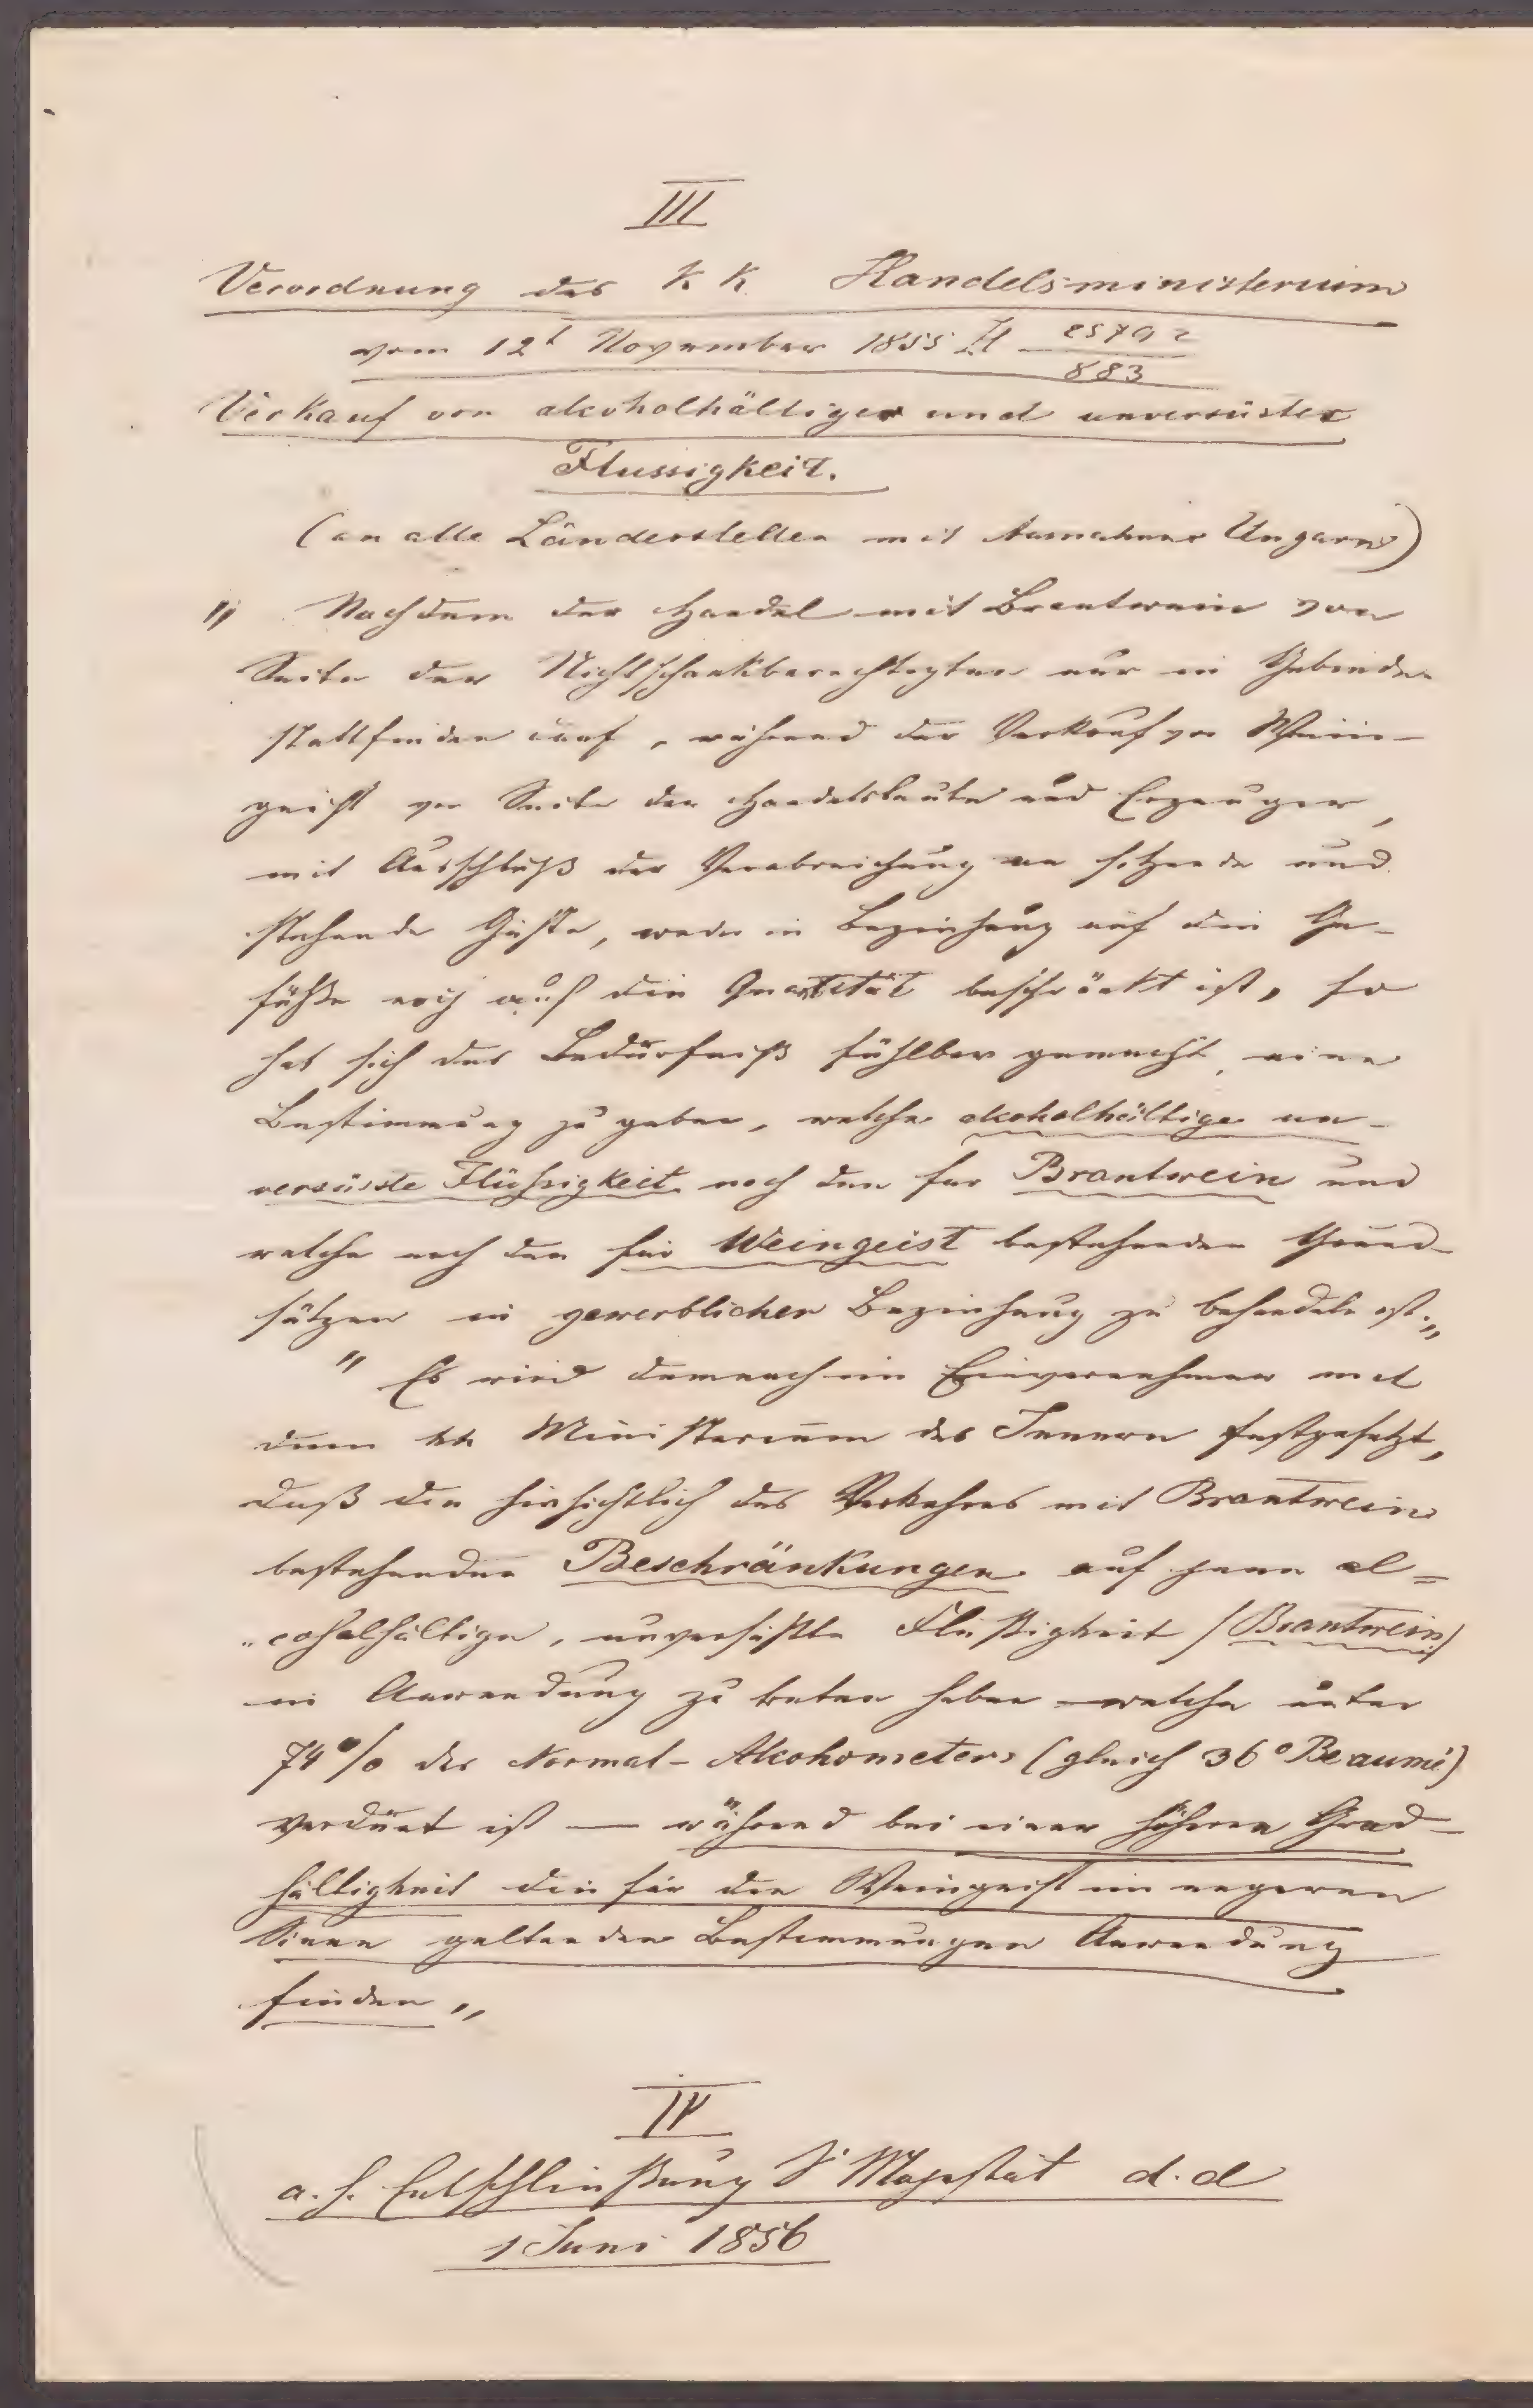 III
Verordnung des K K Handelsministerium
vom 12t November 1855 H 25792/883
Verkauf von alcoholhältiger und unversüster
Flussigkeit.
(an alle Länderstellen mit Ausnahme Ungarns)
" Nachdem der Handel mit Brantwein von
Seite der Nichtschankberechtigten nur in Gebinden
stattfinden darf, während der Verkauf von Wein-
geist von Seite der Handelsleute und Erzeuger,
mit Ausschluß der Verabreichung an sitzende und
stehende Gäste, weder in Beziehung auf die Ge-
fäße noch auf die Quantität beschränkt ist, so
hat sich das Bedürfniß fühlbar gemacht, eine
Bestimmung zu geben, welche alcoholhältige un-
versüsste Flüßigkeit nach den für Brantwein und
welche nach den für Weingeist bestehenden Grund-
sätzen in gewerblicher Beziehung zu behandeln ist.„
" Es wird demnach im Einvernehmen mit
dem kk Ministerium des Innern festgesetzt,
daß die hinsichtlich des Verkehres mit Brantwein
bestehenden Beschränkungen auf jene al=
„coholhältige, unversüßte Flüßigkeit /Brantwein/
in Anwendung zu treten haben – welche unter
74% des Normal-Alcohometers (gleich 36° Beaumé)
verdünt ist — während bei einer höheren Grad-
hältigkeit die für den Weingeist im engeren
Sinne geltenden Bestimmungen Anwendung
finden „
IV
a. h. Entschließung Sr Majestät d. d
1 Juni 1856